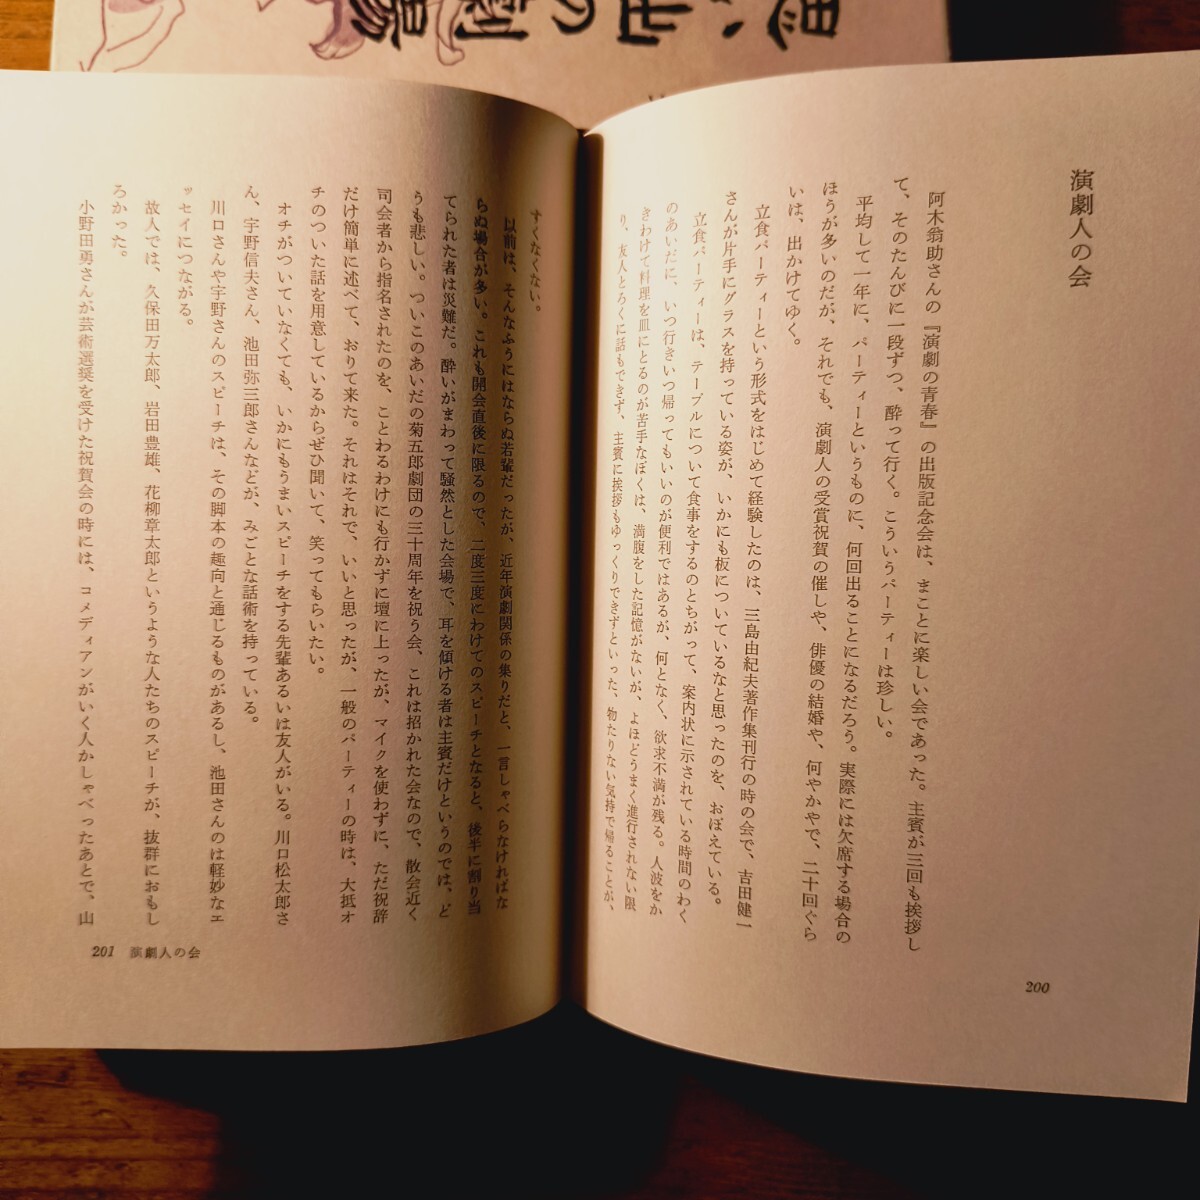 演劇人の会
阿木翁助さんの『演劇の青春』の出版記念会は、まことに楽しい会であった。主賓が三回も挨拶し
て、そのたんびに一段ずつ、酔って行く。こういうパーティーは珍しい。
平均して一年に、パーティーというものに、何回出ることになるだろう。実際には欠席する場合の
ほうが多いのだが、それでも、演劇人の受賞祝賀の催しや、俳優の結婚や、何やかやで、二十回ぐら
いは、出かけてゆく。
立食パーティーという形式をはじめて経験したのは、三島由紀夫著作集刊行の時の会で、吉田健一
さんが片手にグラスを持っている姿が、いかにも板についているなと思ったのを、おぼえている。
立食パーティーは、テーブルについて食事をするのとちがって、案内状に示されている時間のわく
のあいだに、いつ行きいつ帰ってもいいのが便利ではあるが、何となく、欲求不満が残る。人波をか
きわけて料理を皿にとるのが苦手なぼくは、満腹をした記憶がないが、よほどうまく進行されない限
り、友人とろくに話もできず、主賓に挨拶もゆっくりできずといった、物たりない気持で帰ることが、
200
すくなくない。
以前は、そんなふうにはならぬ若輩だったが、近年演劇関係の集りだと、一言しゃべらなければな
らぬ場合が多い。これも開会直後に限るので、二度三度にわけてのスピーチとなると、後半に割り当
てられた者は災難だ。酔いがまわって騒然とした会場で、耳を傾ける者は主賓だけというのでは、ど
うも悲しい。ついこのあいだの菊五郎劇団の三十周年を祝う会、これは招かれた会なので、散会近く
司会者から指名されたのを、ことわるわけにも行かずに壇に上ったが、マイクを使わずに、ただ祝辞
だけ簡単に述べて、おりて来た。それはそれで、いいと思ったが、一般のパーティーの時は、大抵オ
チのついた話を用意しているからぜひ聞いて、笑ってもらいたい。
オチがついていなくても、いかにもうまいスピーチをする先輩あるいは友人がいる。川口松太郎さ
ん、宇野信夫さん、池田弥三郎さんなどが、みごとな話術を持っている。
川口さんや宇野さんのスピーチは、その脚本の趣向と通じるものがあるし、池田さんのは軽妙なエ
ッセイにつながる。
故人では、久保田万太郎、岩田豊雄、花柳章太郎というような人たちのスピーチが、抜群におもし
ろかった。
小野田勇さんが芸術選奨を受けた祝賀会の時には、コメディアンがいく人かしゃべったあとで、山
201 演劇人の会